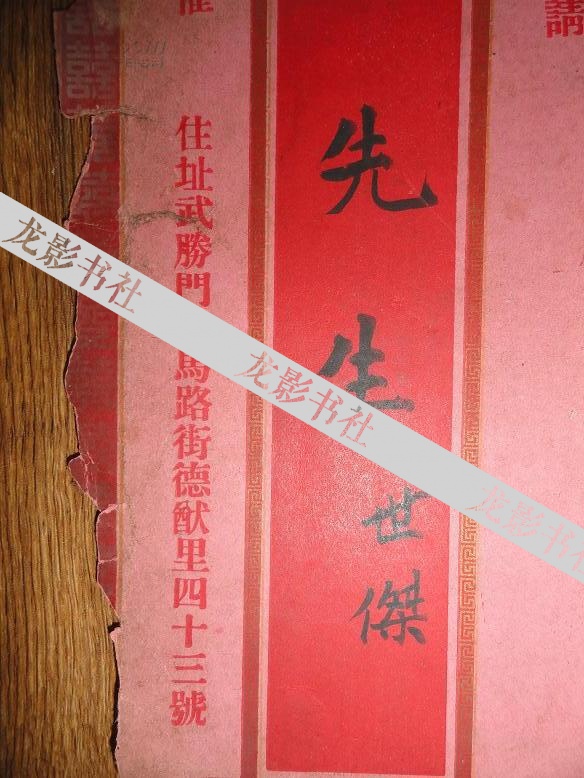 請
先生世傑
住址武勝門
馬路街德猷里四十三號
龙影书社
龙影书社
龙影书社